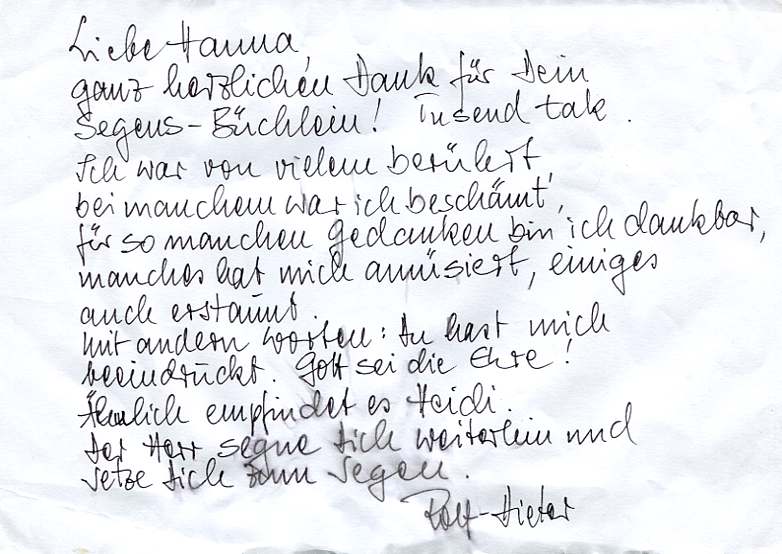 Liebe Hanna,
ganz herzlichen Dank für Dein
Segens-Büchlein! Tusend tak.
Ich war von vielem berührt,
bei manchem war ich beschämt,
für so manchen Gedanken bin ich dankbar,
manches hat mich amüsiert, einiges
auch erstaunt.
Mit andern Worten: Du hast mich
beeindruckt. Gott sei die Ehre!
Ähnlich empfindet es Heidi.
Der Herr segne Dich weiterhin und
setze Dich zum Segen.
Rolf-Dieter